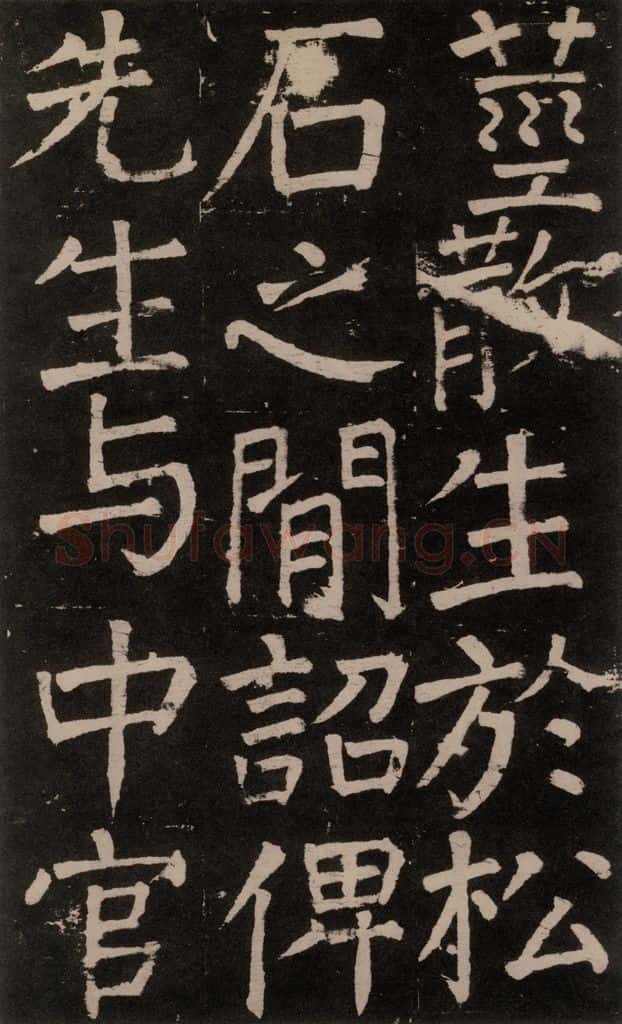 莖散生於松
石之閒詔俾
先生与中官
Shufawang.CN